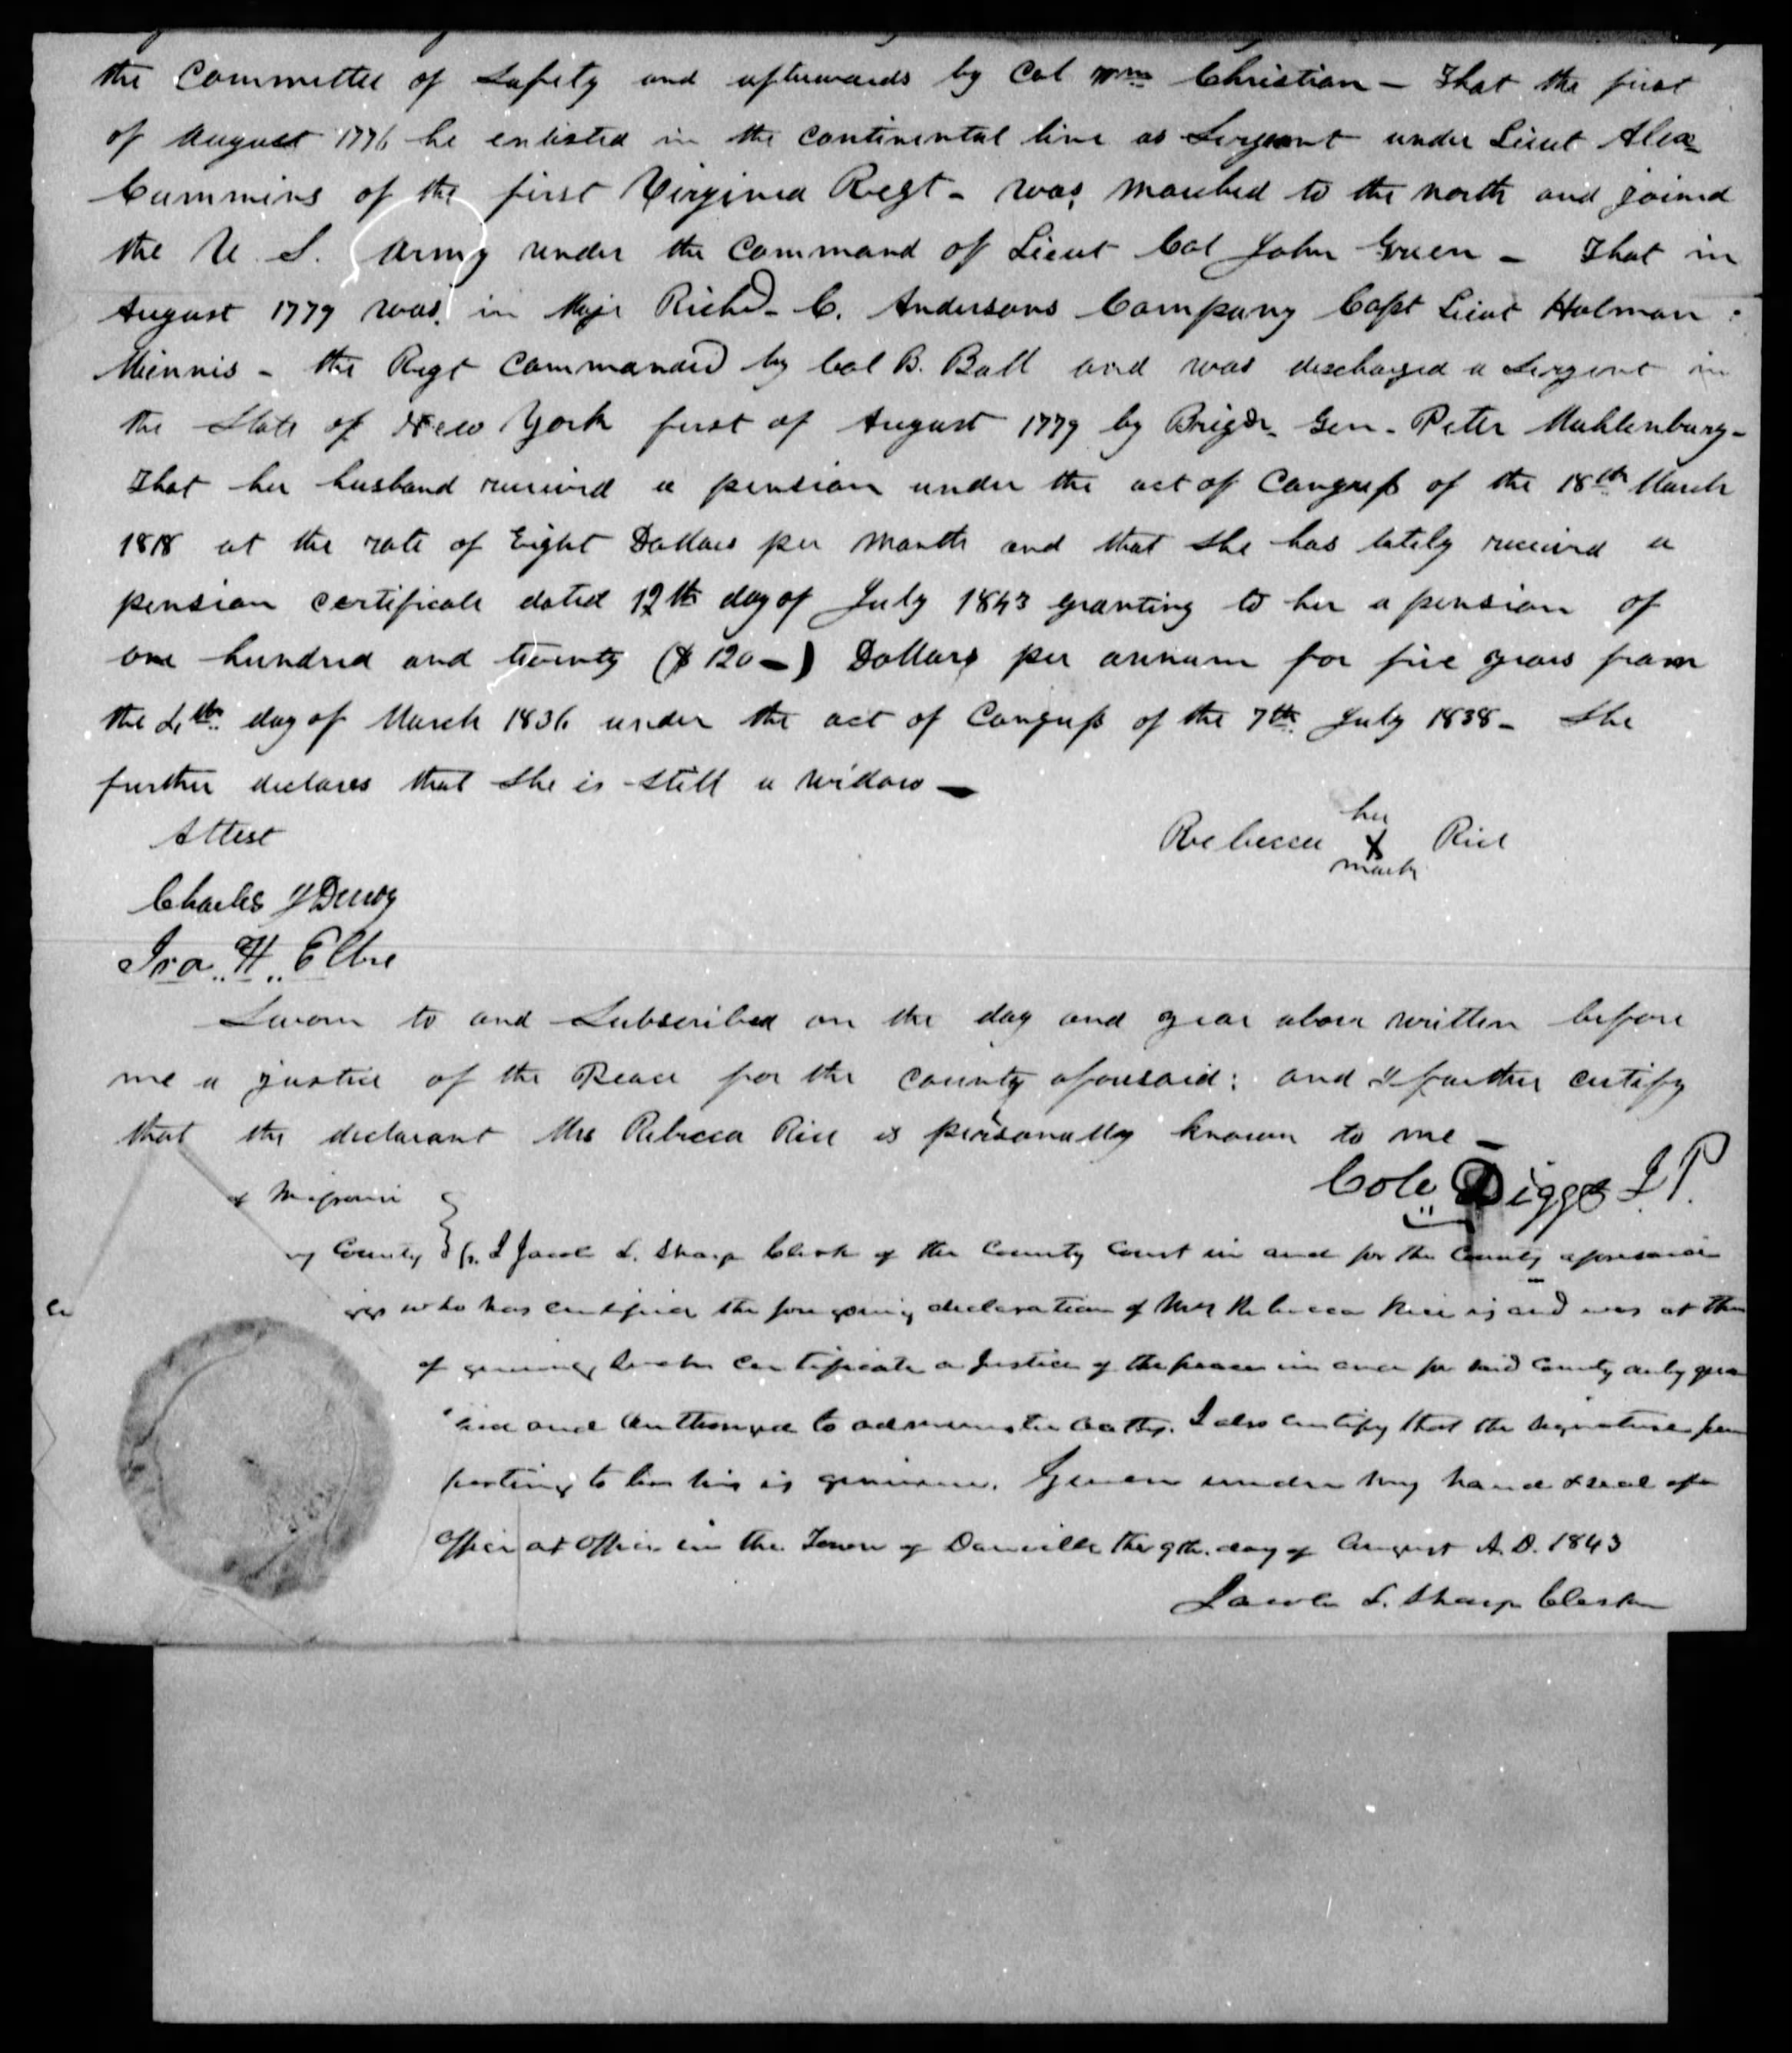 the Committee of Safety and afterwards by Col Wm Christian – That the first
of August 1776 he enlisted in the continental line as Sergeant under Lieut Alex
Cummins of the first Virginia Regt – was marched to the north and joined
the U. S. Army under the command of Lieut Col John Green – That in
August 1779 was in Majr Richd. C. Andersons Company Capt Lieut Holman
Minnis – the Regt commanded by Col B. Ball and was discharged a Sergent in
the State of New York first of August 1779 by Brigdr. Gen. Peter Muhlenburg –
That her husband received a pension under the act of Congress of the 18th March
1818 at the rate of Eight Dollars per Month and that she has lately received a
pension certificate dated 12th day of July 1843 granting to her a pension of
one hundred and twenty ($ 120 –) Dollars per annum for five years from
the 4th day of March 1836 under the act of Congress of the 7th July 1838 – She
further declares that she is still a widow –
Attest
Rebecca her X mark Rice
Charles
Ira. H. 
Sworn to and Subscribed on the day and year above written before
me a justice of the Peace for the county aforesaid; and I further certify
that the declarant Mrs Rebecca Rice is personally known to me –
Cole Diggs J P.
of Missouri
County I Jacob L. Sharp Clerk of the County Court in and for the County aforesaid
who has certified the foregoing declaration of Mrs Rebecca Rice is and was at the
of certificate a Justice of the peace in and for said County duly
and authorized to administer oaths. I also certify that the signature pur
porting to be his is genuine. Given under my hand & seal of
office at office in the Town of Danville the 9th. day of August A. D. 1843
Jacob L. Sharp Clerk